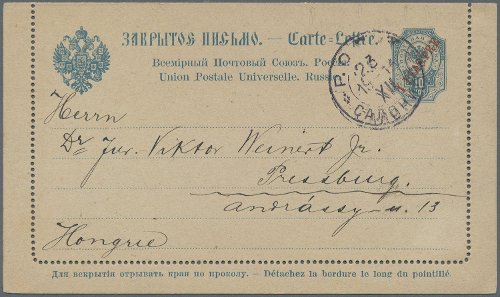 ЗАКРЫТОЕ ПИСЬМО. — Carte-Lettre.
Всемірный Почтовый Союзъ.
Union Postale Universelle. Russie
23
XII
Herrn
Dr. Jur. Viktor Weinert Jr.
Pressburg.
Andrássy u. 13
Hongrie
Для вскрытія отрывать края по проколу. — Détachez la bordure le long du pointillé.